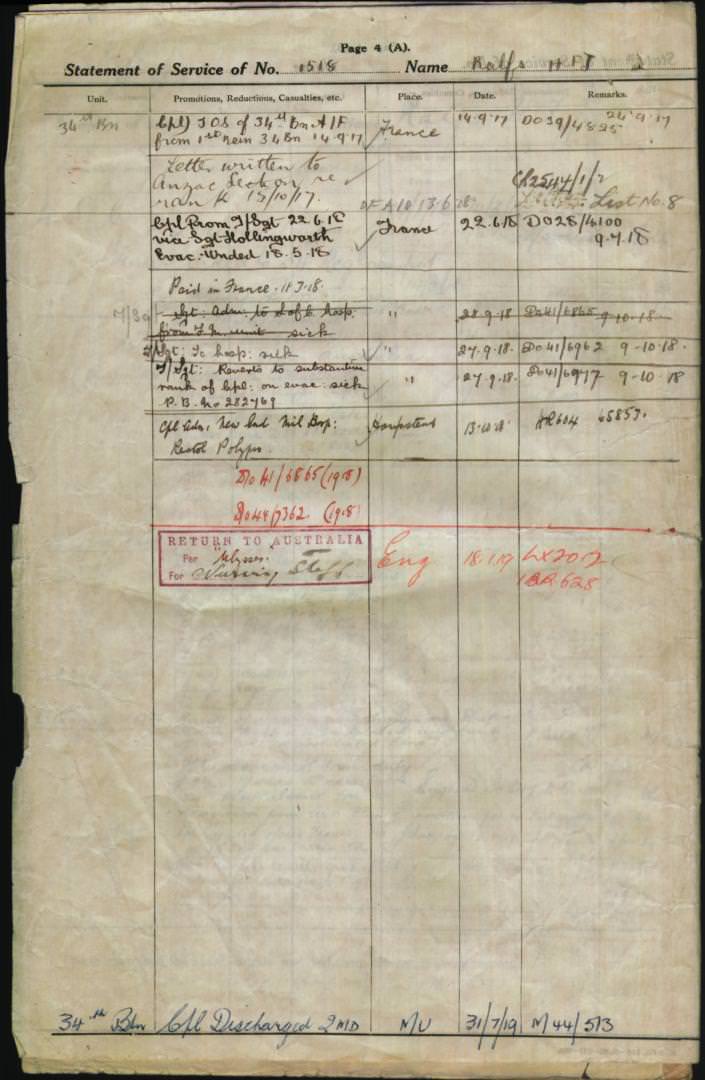 Page 4 (A).
Statement of Service of No. 1518 Name Ralfs H F J
Unit. Promotions, Reductions, Casualties, etc. Place. Date. Remarks.
34th Bn Cpl) TOS of 34th Bn AIF France 14.9.17 DO39/4825 24.9.17
from 1st rein 34 Bn 14.9.17
Letter written to
Anzac Section re CR2544/1/2
rank 13/10/17. 13.6.18 List No. 8
Cpl Prom T/Sgt 22.6.18 France 22.6.18 DO28/4100
vice Sgt Hollingworth 9.7.18
Evac. Wnded 18.5.18
Paid in France
T/Sgt Sgt: Adm: to hosp. " 28.9.18 Do41/6865 9-10-18
from unit sick
T/Sgt: To hosp: sick " 27.9.18. Do41/6962 9-10-18.
T/Sgt: Reverts to substantive " 27.9.18. Do41/6977 9-10 18
rank of Cpl: on evac: sick
P.B. No 282769
Cpl Adm, New End Mil Hosp: Hampstead 13.10.18 HR604 65853.
Rectal Polypus.
Do 41/6865 (1918)
Do 44/7362 (1918)
RETURN TO AUSTRALIA Eng 18.1.19 LX2012
Per "Ulysses"
For Nursing Staff 628
34th Btn Cpl Discharged 2MD MU 31/7/19 M44/513